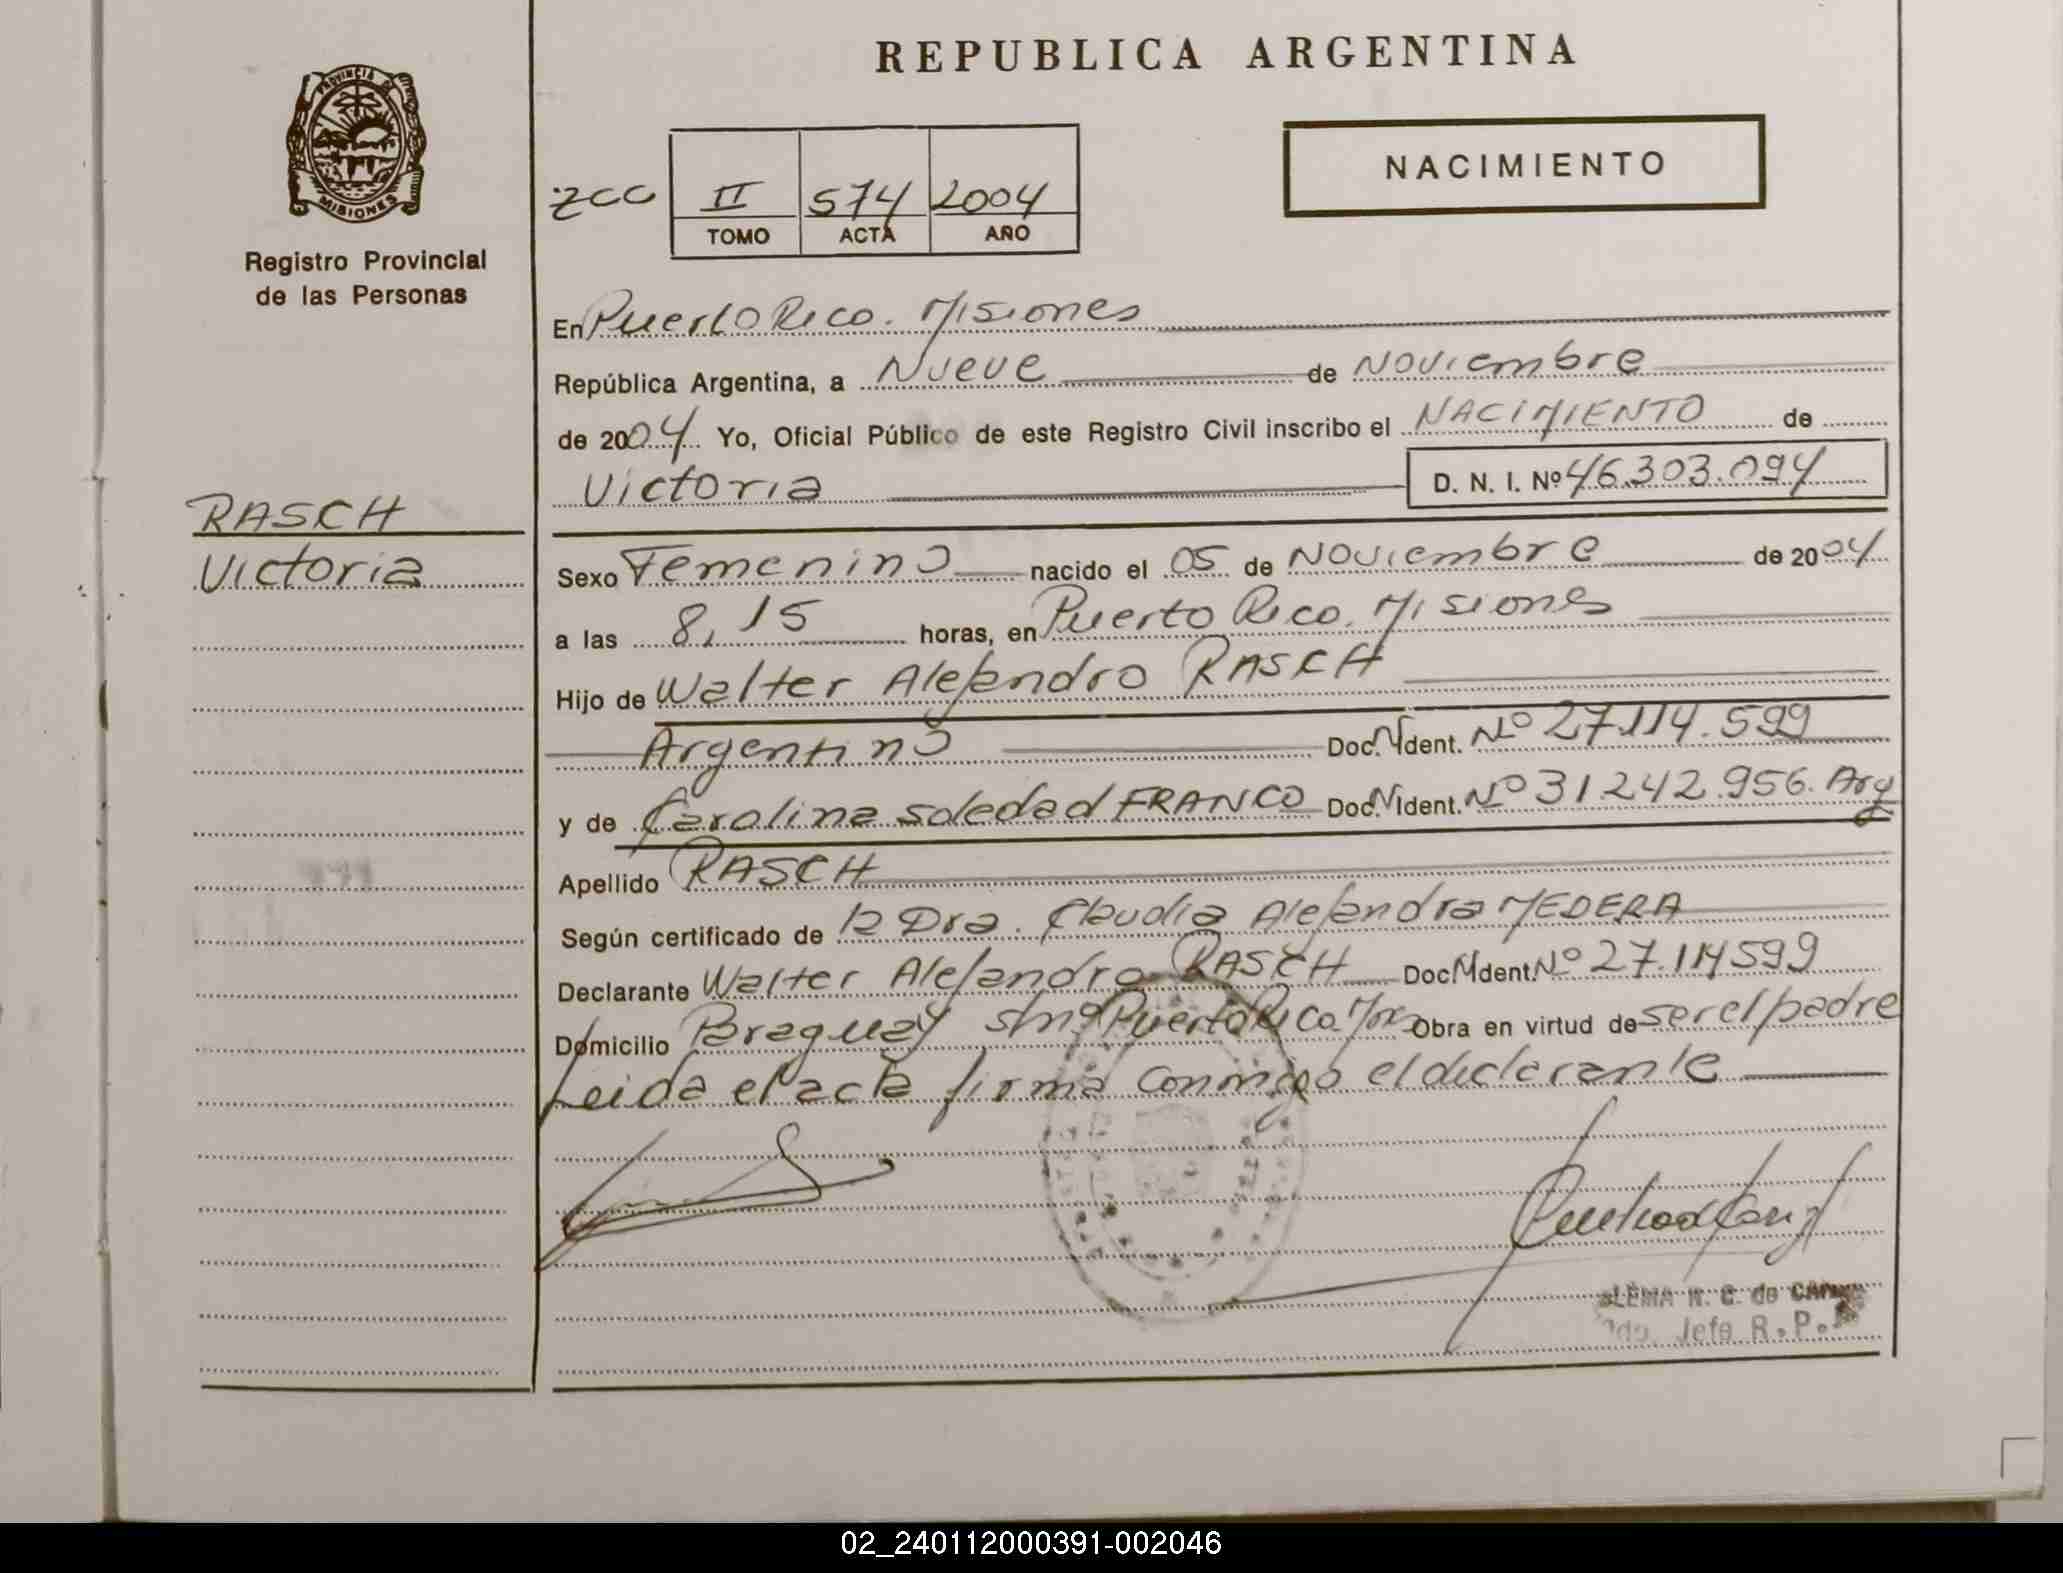 REPUBLICA ARGENTINA
PROVINCIA DE MISIONES
Registro Provincial
de las Personas
NACIMIENTO
ZCC II 574 2004
TOMO ACTA AÑO
En Puerto Rico. Misiones
República Argentina, a Nueve de Noviembre
de 2004 Yo, Oficial Público de este Registro Civil inscribo el NACIMIENTO de
Victoria D. N. I. Nº 46.303.094
RASCH
Victoria
Sexo Femenino nacido el 05 de Noviembre de 2004
a las 8,15 horas, en Puerto Rico. Misiones
Hijo de Walter Alejandro RASCH
Argentino Doc. N Ident. Nº 27.114.599
y de Carolina Soledad FRANCO Doc. N Ident. Nº 31.242.956. Arg
Apellido RASCH
Según certificado de la Dra. Claudia Alejandra MEDERA
Declarante Walter Alejandro RASCH Doc. N Ident. Nº 27.114599
Domicilio Paraguay s/nº Puerto Rico. Mnes Obra en virtud de ser el padre
Leida el acta firma conmigo el declarante
de
Jefe R. P.
02_240112000391-002046